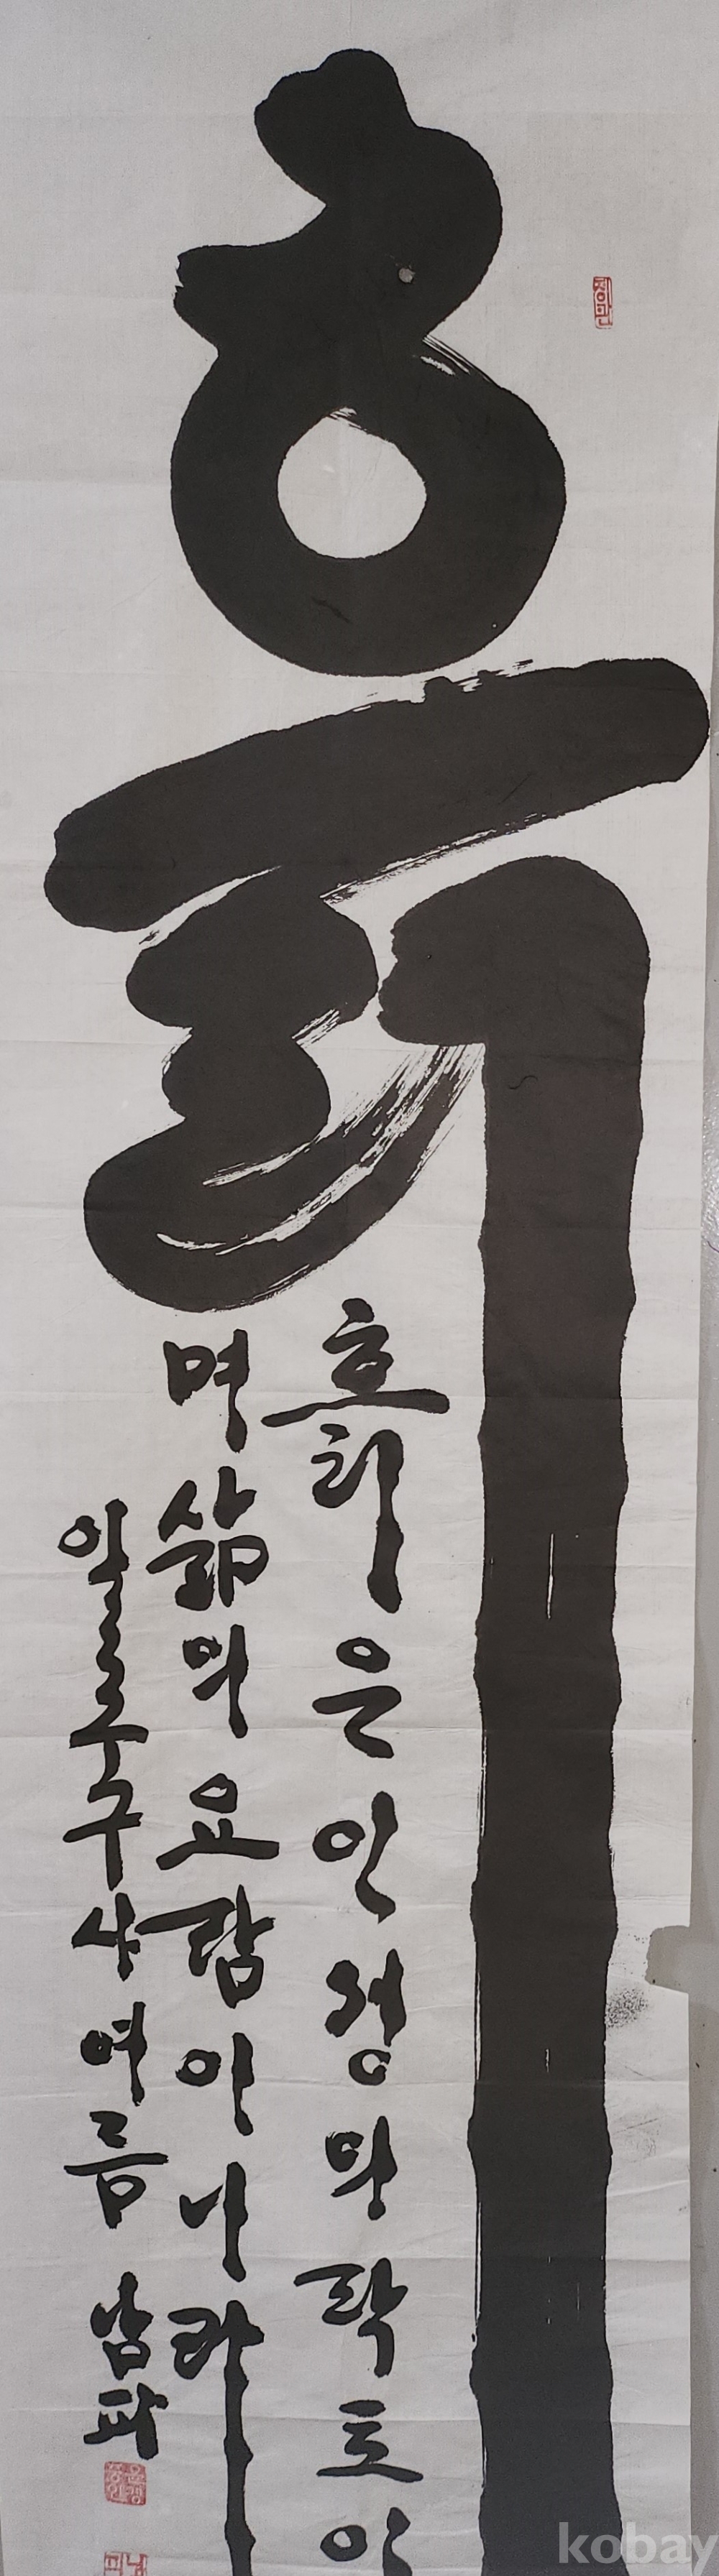 흙
흙은 인정의 락토이
며 삶의 요람이니라
일구구사 여름 남파
kobay